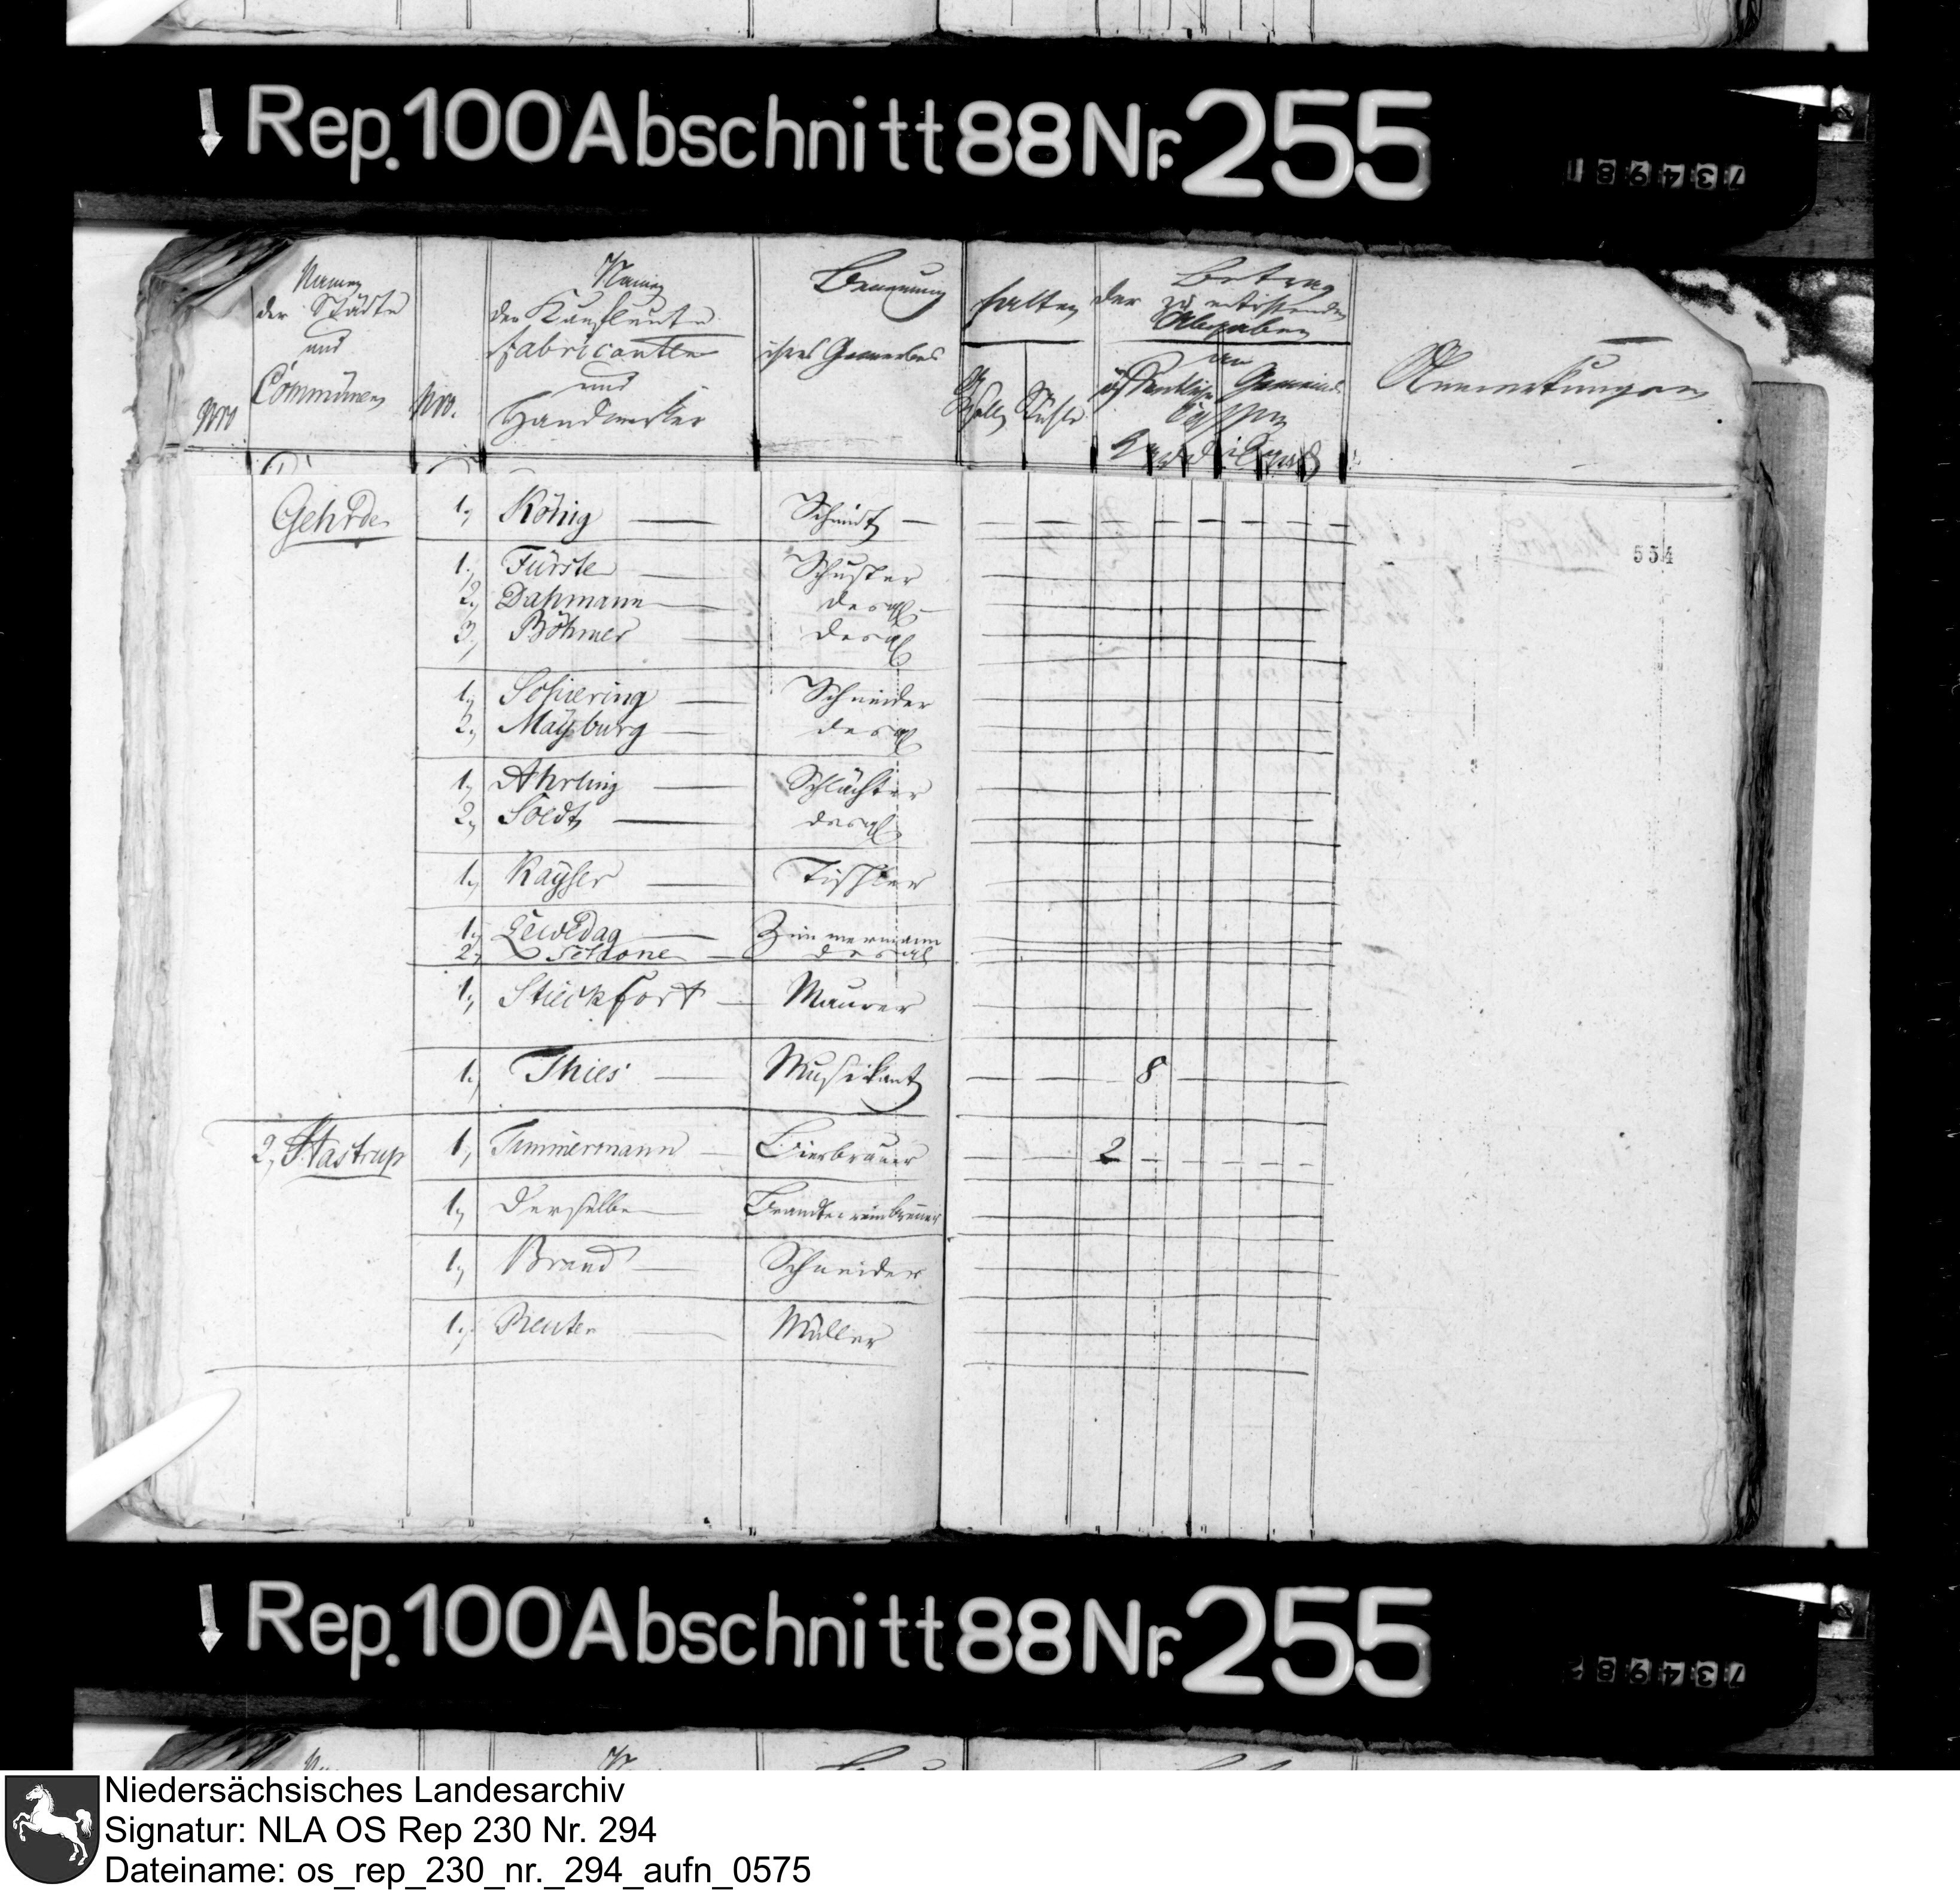 Rep. 100 Abschnitt 88 Nr. 255
734981
Nro
Namen
der Städte
und
Communen
Nro.
Namen
der Kaufleute
Fabricanten
und
Handwerker
Benennung
ihres Gewerbes
halten
Gesellen
Stühle
Betrag
der zu entrichtenden
Abgaben
an
öffentliche Gemeinde
Cassen
Anmerkungen
554
Gehrde
1, König — Schmidt —
1, Fürste — Schuster
2, Dahmann — desgl —
3, Böhmer — desgl
1, Schiering — Schneider
2, Mayburg — desgl
1, Ahrling — Schlächter
2, Soedt — desgl
1, Kayser — Tischler
1, Lewedag — Zimmermann
2, Schöne — desgl
1, Stückfort — Maurer
1, Thies — Musikant — 8
2, Hastrup 1, Timmermann — Bierbrauer — 2
1, Derselbe — Brandteweinbrenner
1, Brand — Schneider
1, Reuter — Müller
Rep. 100 Abschnitt 88 Nr. 255
Niedersächsisches Landesarchiv
Signatur: NLA OS Rep 230 Nr. 294
Dateiname: os_rep_230_nr._294_aufn_0575